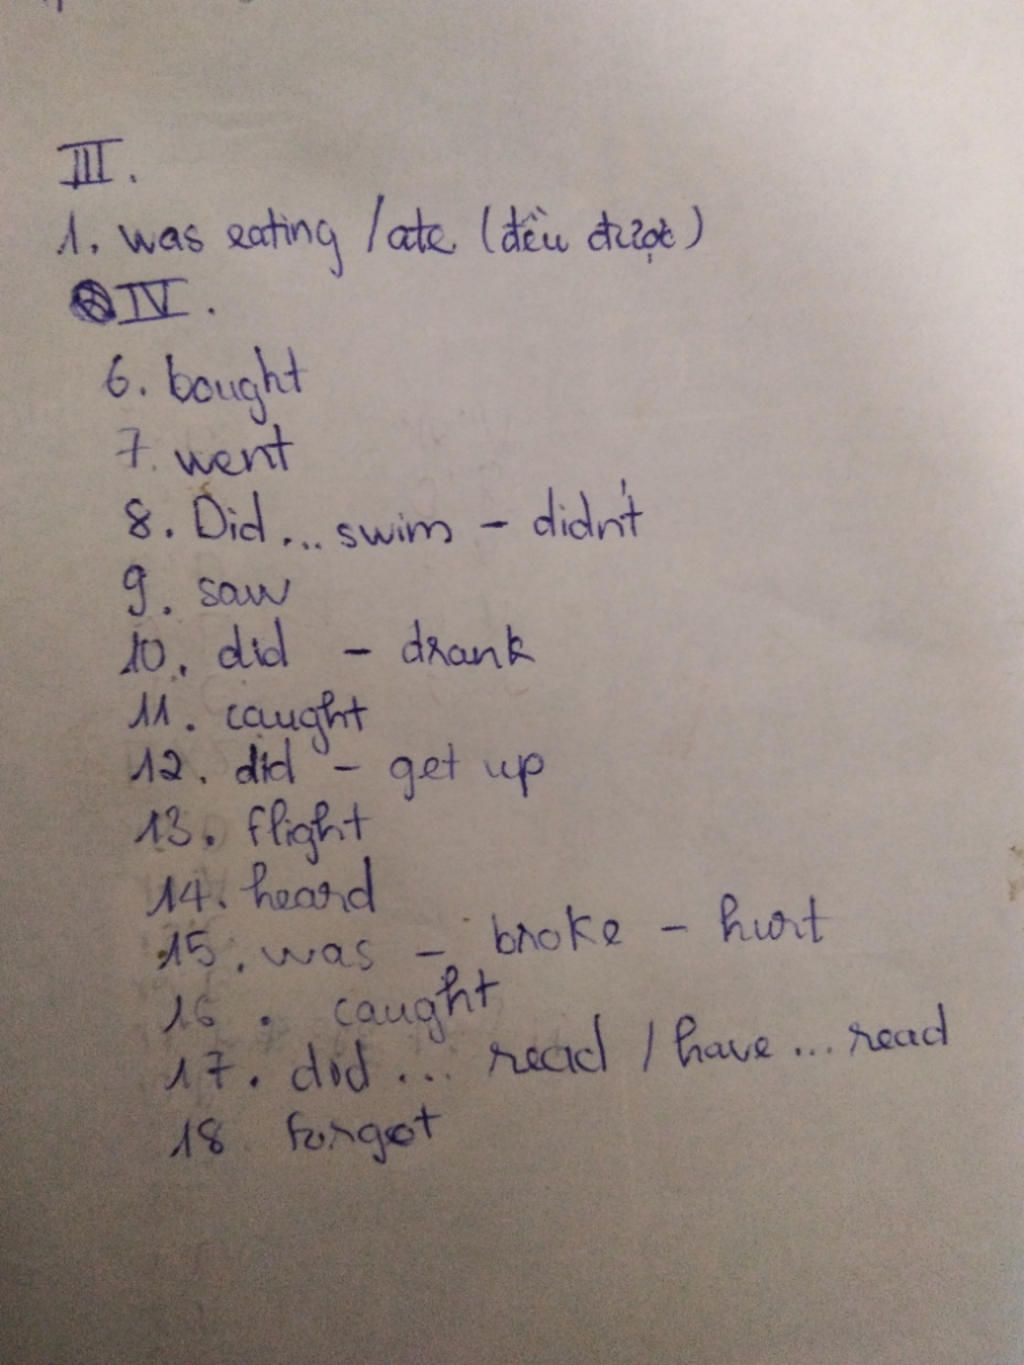 III.
1. was eating / ate (đều được)
IV.
6. bought
7. went
8. Did ... swim - didn't
9. saw
10. did - drank
11. caught
12. did - get up
13. flight
14. heard
15. was - broke - hurt
16. caught
17. did ... read / have ... read
18 forgot